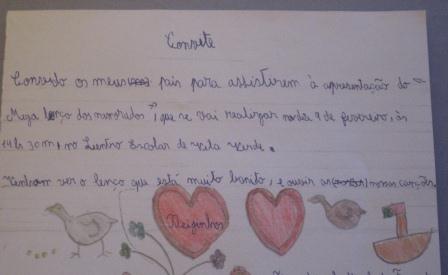 Convite
Convido os meus pais para assistirem à apresentação do
"Mega lenço dos namorados", que se vai realizar no dia 9 de fevereiro, às
14h 30m, no Centro Escolar de Vila Verde.
Venham ver o lenço que está muito bonito, e ouvir as nossas canções
Beijinhos